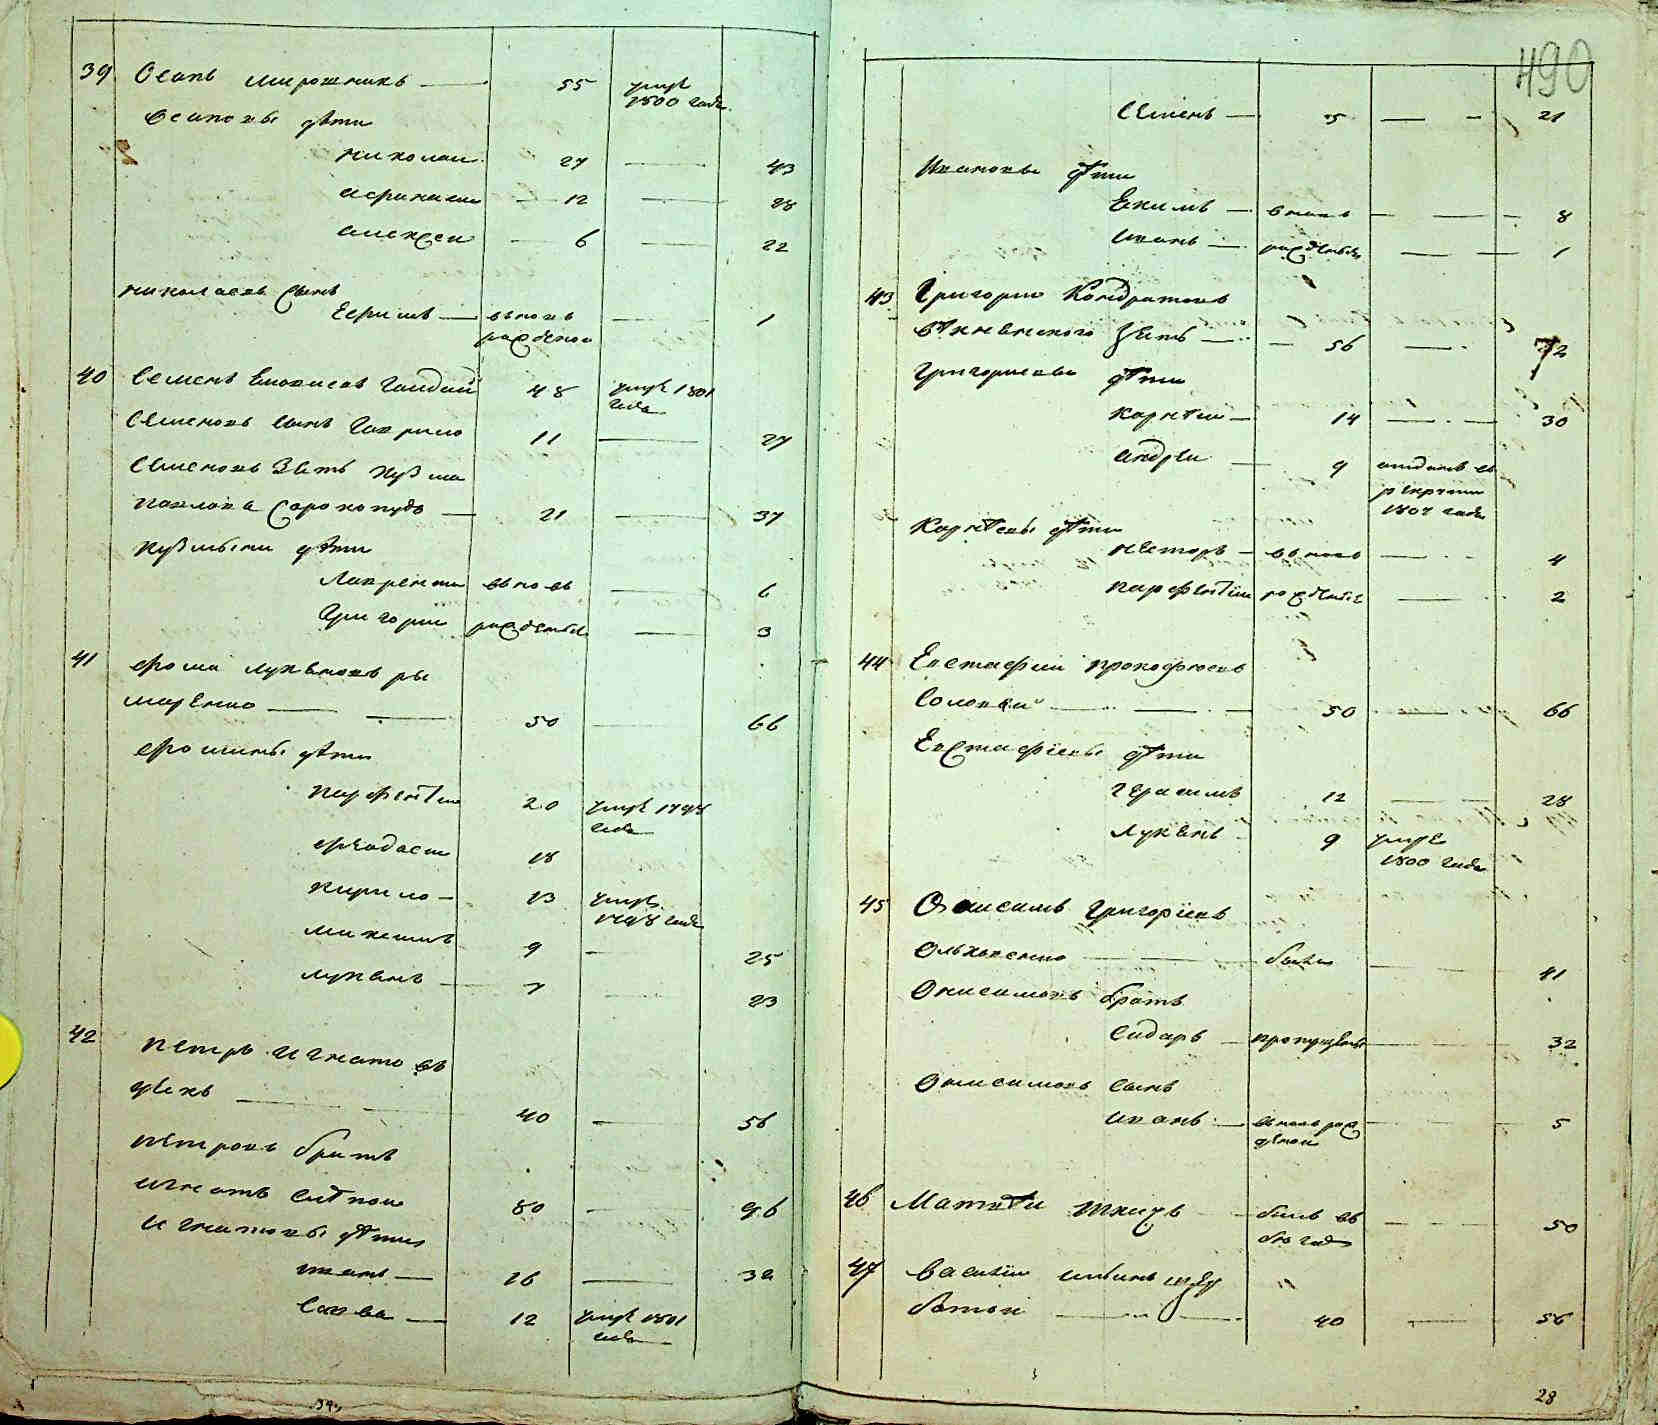 39 Осипъ Мирошникъ 55 умре
1800 года
Осиповы дѣти
Николаи 27 43
Афанасеи 12 28
Алексеи 6 22
Николаевъ сынъ
Ефимъ вновь 1
рожденои
40 Семенъ Гайдай 48 умре 1801
года
Семеновъ сынъ Гаврило 11 27
Семеновъ зять Кузма
Павловъ Сорокопудъ 21 37
Кузмины дѣти
Лаврентеи вновь 6
Григории рожденые 3
41 Фома Лукьяновъ Ры
маренко 50 66
Фомины дѣти
Парфентии 20 умре 1798
года
Феодосеи 18
Кирило 13 умре
1798 года
Микешъ 9 25
Лукьянъ 7 23
42 Петръ Игнатовъ
40 56
Петровъ братъ
Игнатъ 80 96
Игнатовы дѣти
Иванъ 16 32
Савва 12 умре 1801
года
34
490
Семенъ 5 21
Ивановы дѣти
Екимъ вновь 8
Иванъ рожденые 1
43 Григории Кондратовъ
зять 56 72
Григориевы дѣти
Корнѣи 14 30
Андреи 9 отданъ въ
рекруты
1807 года
Корнѣевы дѣти
Несторъ вновь 4
Парфентии рожденые 2
44 Евстафии Прокофиевъ
Соловей 50 66
Евстафиевы дѣти
Герасимъ 12 28
Лукьянъ 9 умре
1800 года
45 Онисимъ Григориевъ
Ольховенко 41
Онисимовъ братъ
Сидоръ пропущенъ 32
Онисимовъ сынъ
Иванъ вновь рож 5
денои
46 Матвѣи 50
47 Василии
40 56
28